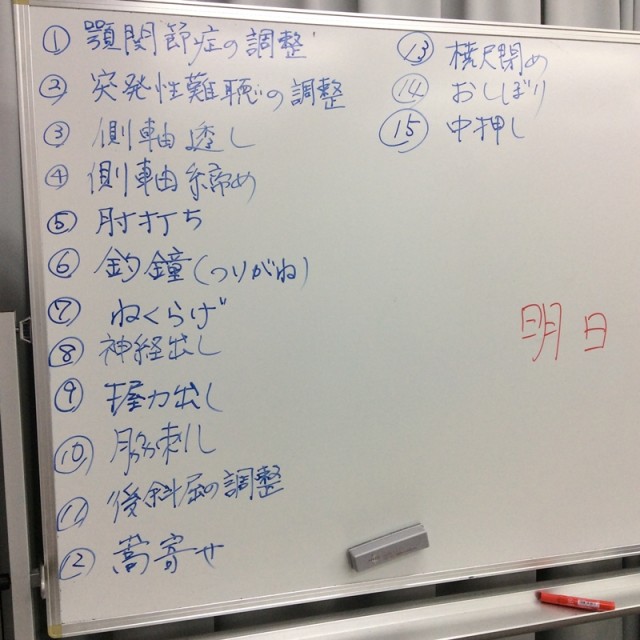 ① 顎関節症の調整
② 突発性難聴の調整
③ 側軸透し
④ 側軸締め
⑤ 肘打ち
⑥ 釣鐘(つりがね)
⑦ ねくらげ
⑧ 神経出し
⑨ 握力出し
⑩ 脇刺し
⑪ 後斜屈の調整
⑫ 蒿寄せ
⑬ 横尺閉め
⑭ おしぼり
⑮ 中押し
明日